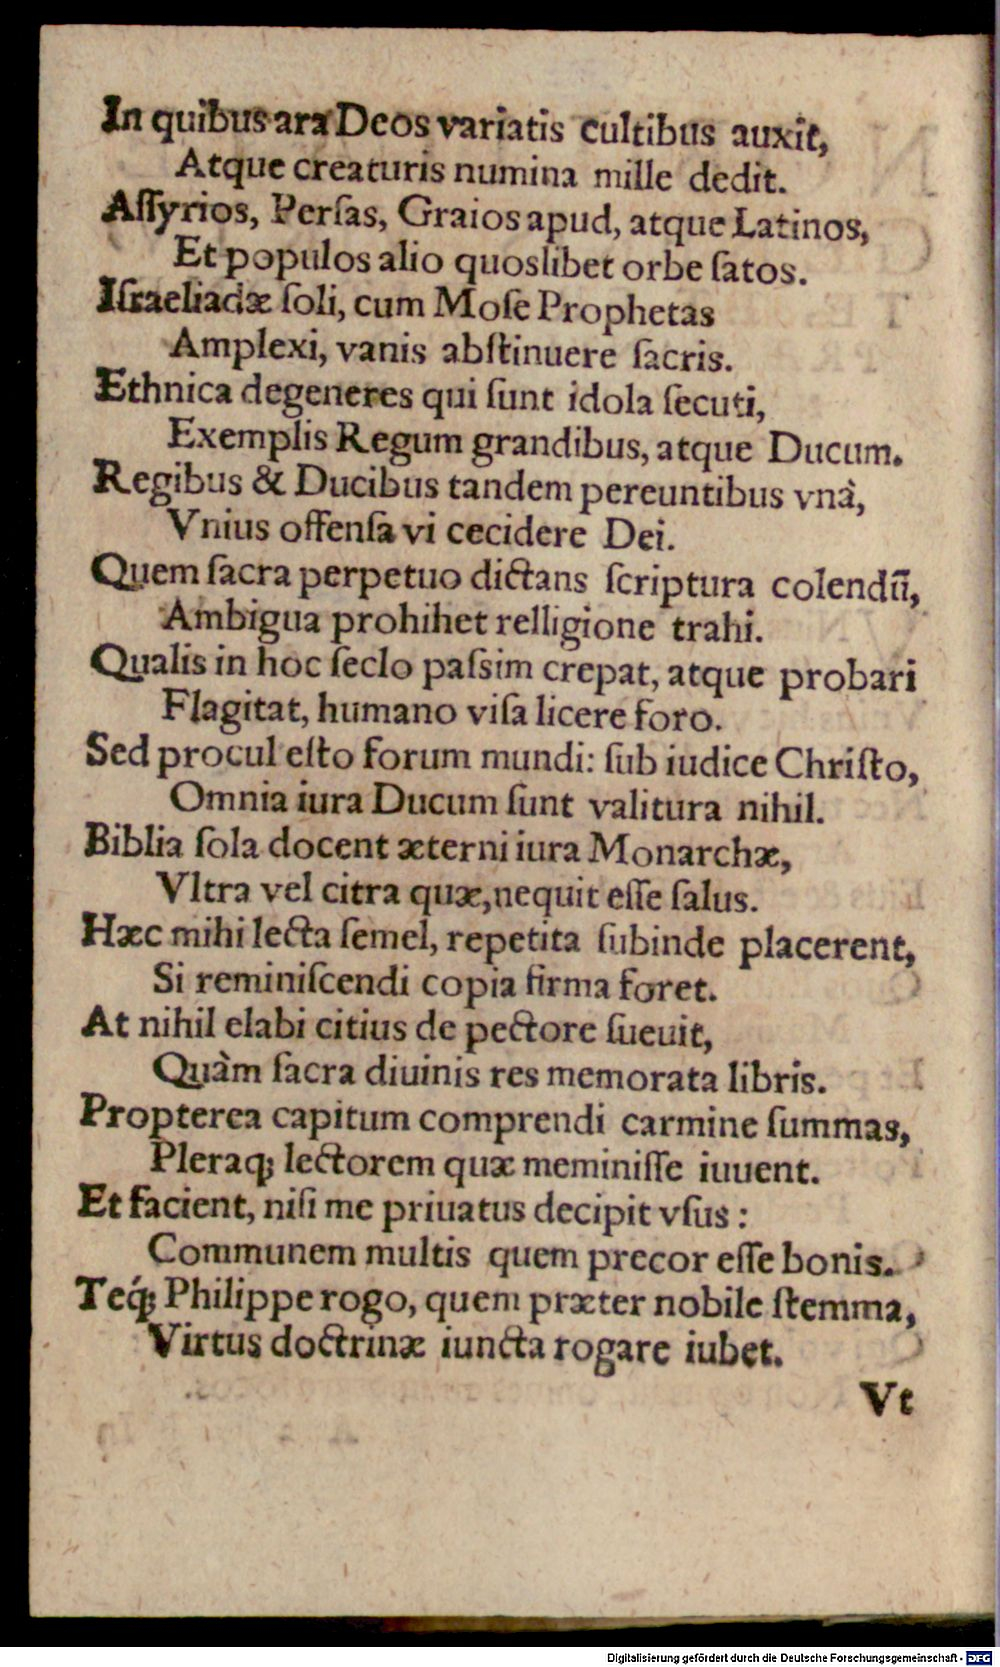 In quibus ara Deos variatis cultibus auxit,
Atque creaturis numina mille dedit.
Aſſyrios, Perſas, Graios apud, atque Latinos,
Et populos alio quoslibet orbe ſatos.
Iſraeliadæ ſoli, cum Moſe Prophetas
Amplexi, vanis abſtinuere ſacris.
Ethnica degeneres qui ſunt idola ſecuti,
Exemplis Regum grandibus, atque Ducum.
Regibus & Ducibus tandem pereuntibus vnà,
Vnius offenſa vi cecidere Dei.
Quem ſacra perpetuo dictans ſcriptura colendū,
Ambigua prohihet relligione trahi.
Qualis in hoc ſeclo paſsim crepat, atque probari
Flagitat, humano viſa licere foro.
Sed procul eſto forum mundi: ſub iudice Chriſto,
Omnia iura Ducum ſunt valitura nihil.
Biblia ſola docent æterni iura Monarchæ,
Vltra vel citra quæ, nequit eſſe ſalus.
Hæc mihi lecta ſemel, repetita ſubinde placerent,
Si reminiſcendi copia firma foret.
At nihil elabi citius de pectore ſueuit,
Quàm ſacra diuinis res memorata libris.
Propterea capitum comprendi carmine ſummas,
Pleraq; lectorem quæ meminiſſe iuuent.
Et facient, niſi me priuatus decipit vſus:
Communem multis quem precor eſſe bonis.
Teq́; Philippe rogo, quem præter nobile ſtemma,
Virtus doctrinæ iuncta rogare iubet.
Vt
Digitalisierung gefördert durch die Deutsche Forschungsgemeinschaft - DFG